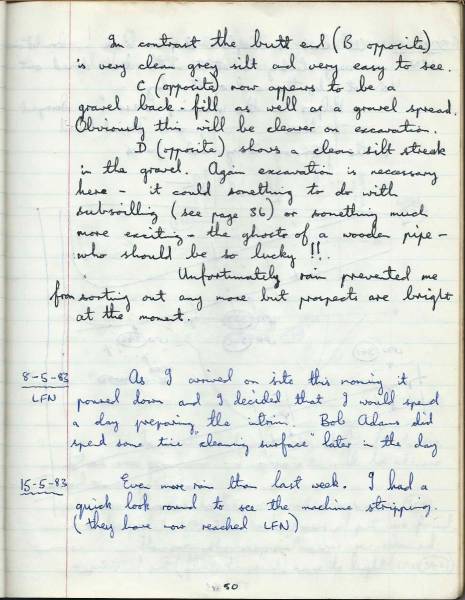 In contrast the butt end (B opposite)
is very clean grey silt and very easy to see.
C (opposite) now appears to be a
gravel back-fill as well as a gravel spread.
Obviously this will be clearer on excavation.
D (opposite) shows a clean silt streak
in the gravel. Again excavation is necessary
here - it could something to do with
subsoiling (see page 36) or something much
more exciting - the ghosts of a wooden pipe -
who should be so lucky !!.
Unfortunately rain prevented me
from sorting out any more but prospects are bright
at the moment.
8-5-83 As I arrived on site this morning it
LFN poured down and I decided that I would spend
a day preparing the interim. Bob Adams did
spend some time "cleaning surface" later in the day
15-5-83 Even more rain than last week. I had a
quick look round to see the machine stripping.
(they have now reached LFN)
50